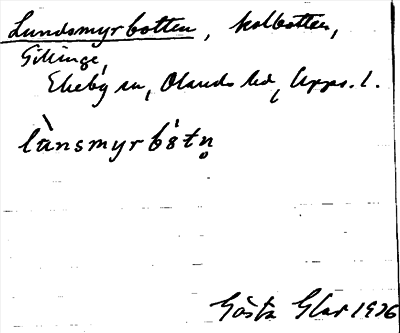 Lundsmyrbotten, kolbotten,
Gilinge,
Ekeby sn, Olands hd, Upps. l.
lànsmyrbótn̥
Gösta Glar 1926